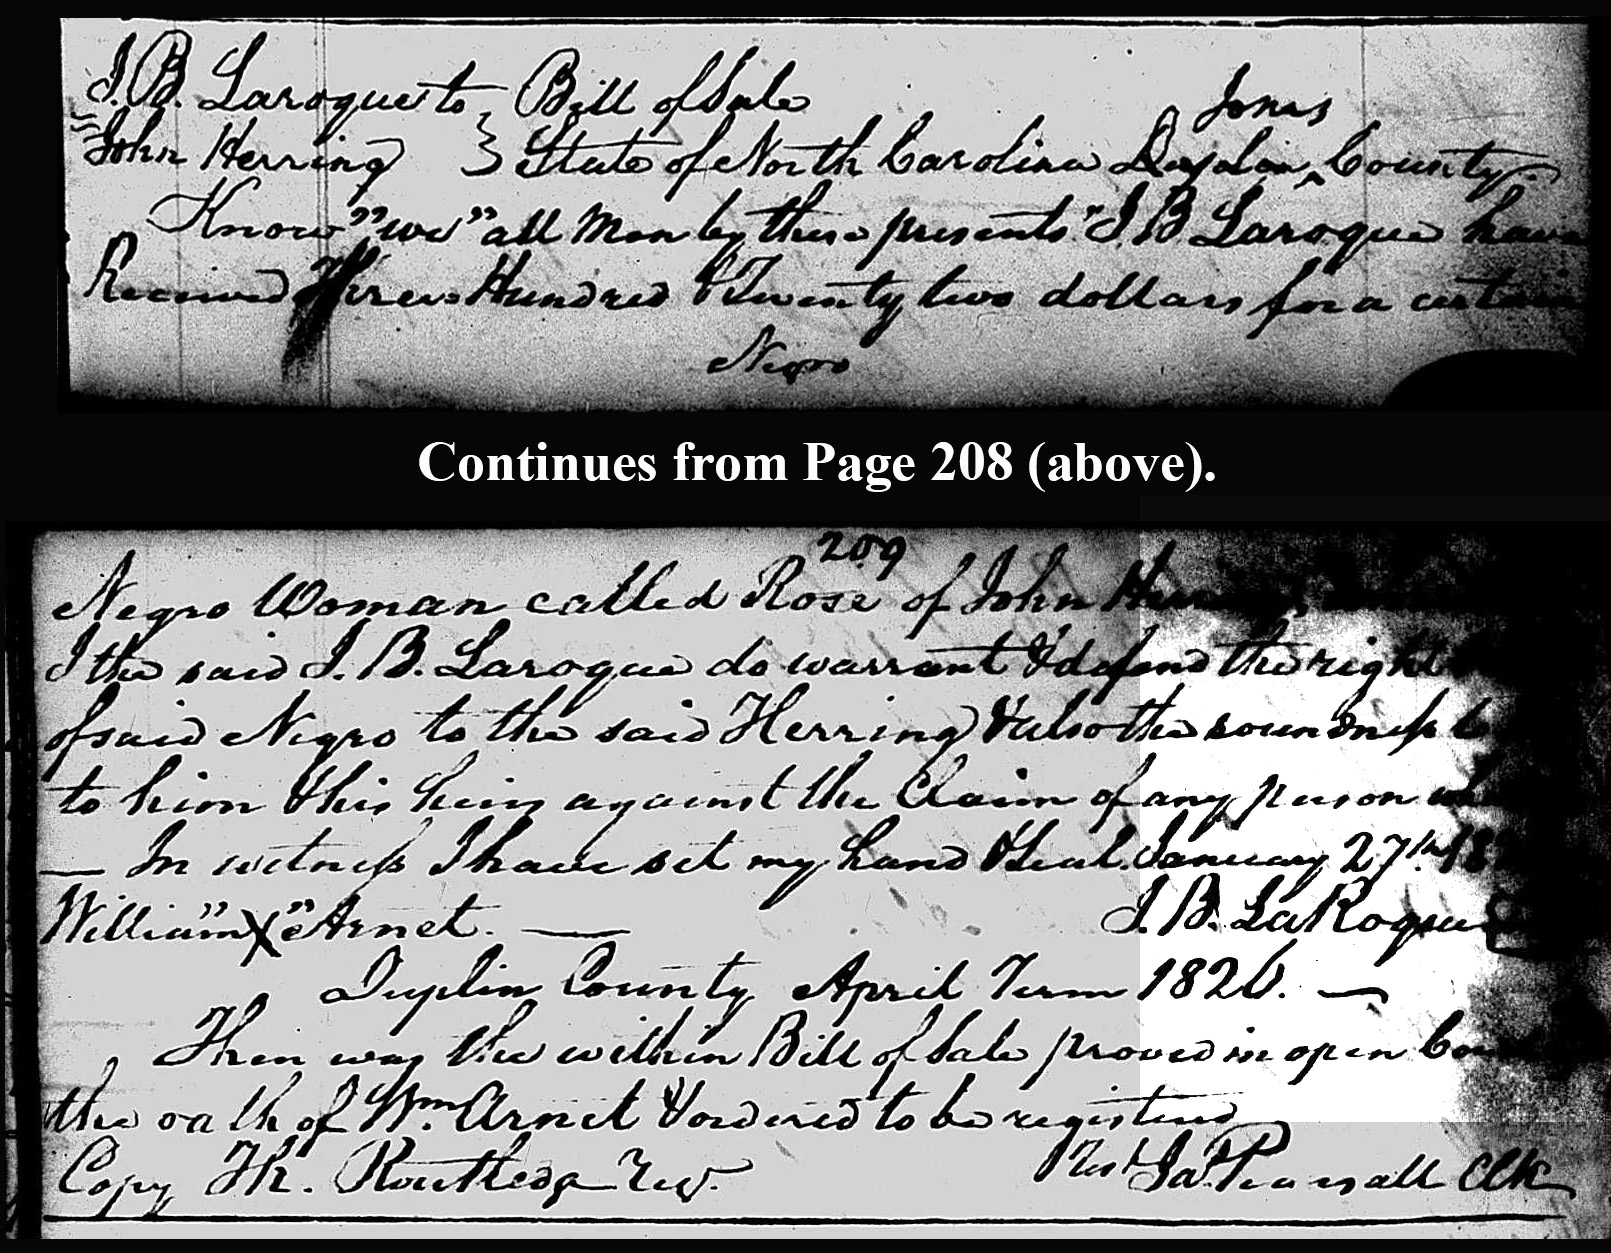 J. B. Laroque to } Bill of Sale
Jones
John Herring } State of North Carolina Duplin ^ County.
Know "we" all Men by these presents "I. B Laroque have
Received Three Hundred & Twenty two dollars for a certain
Negro
Continues from Page 208 (above).
209
Negro Woman called Rose of John Herring
I the said J. B. Laroque do warrant & defend the right
of said Negro to the said Herring & also the soundness
to him & his heirs against the Claim of any person
— In witness I have set my hand & Seal. January 27th. 182
William "X" Arnet. — J. B. LaRoque
Duplin County April Term 1826. —
Then was the within Bill of Sale proved in open
the oath of Wm. Arnet & ordered to be registered
Copy Th. Routledge Test Ja. Pearsall Clk